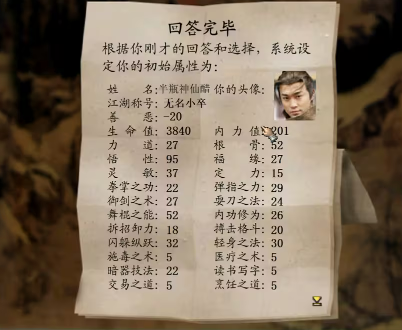 回答完毕
根据你刚才的回答和选择，系统设
定你的初始属性为：
姓名：半瓶神仙醋 你的头像：
江湖称号：无名小卒
善恶：-20
生命值：3840 内力值 201
力道：27 根骨：52
悟性：95 福缘：27
灵敏：37 定力：15
拳掌之功：22 弹指之力：29
御剑之术：27 耍刀之法：24
舞棍之能：52 内功修为：26
拆招卸力：18 搏击格斗：20
闪躲纵跃：32 轻身之法：30
施毒之术：5 医疗之术：5
暗器技法：22 读书写字：5
交易之道：5 烹饪之道：5